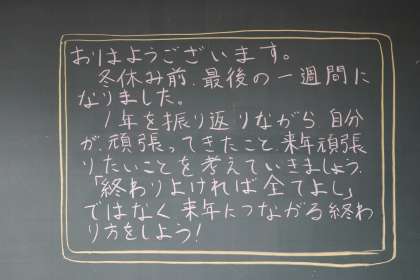 おはようございます。
冬休み前、最後の一週間に
なりました。
1年を振り返りながら 自分
が、頑張ってきたこと、来年頑張
りたいことを考えていきましょう。
「終わりよければ全てよし」
ではなく、来年につながる終わ
り方をしよう!